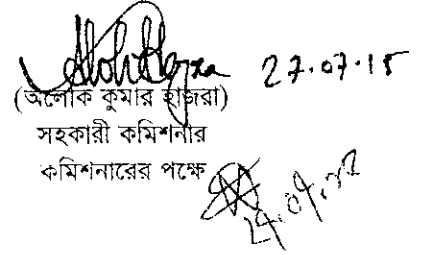 27.07.15
(অলোক কুমার হাজরা)
সহকারী কমিশনার
কমিশনারের পক্ষে